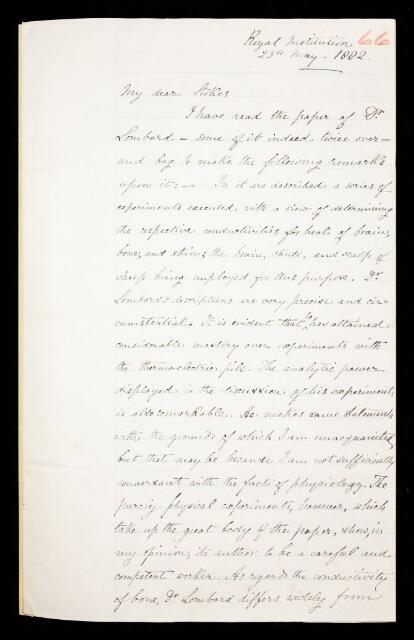 Royal Institution 66
23rd May. 1882.
My dear Stokes
I have read the paper of Dr
Lombard – some of it indeed twice over –
and beg to make the following remarks
upon it: – In it are described a series of
experiments executed with a view of determining
the respective conductivities for heat of brain,
bone, and skin; the brain, skull, and scalp of
sheep being employed for this purpose. Dr
Lombard's descriptions are very precise and cir-
cumstantial. It is evident that he has attained
considerable mastery over experiments with
the thermoelectric pile. The analytic power
displayed in the discussion of his experiments
is also remarkable. He makes some statements
with the grounds of which I am unacquainted,
but that may be because I am not sufficiently
conversant with the facts of physiology. The
purely physical experiments, however, which
take up the great body of the paper, show, in
my opinion, its author to be a careful and
competent worker. As regards the conductivity
of bone, Dr Lombard differs widely from